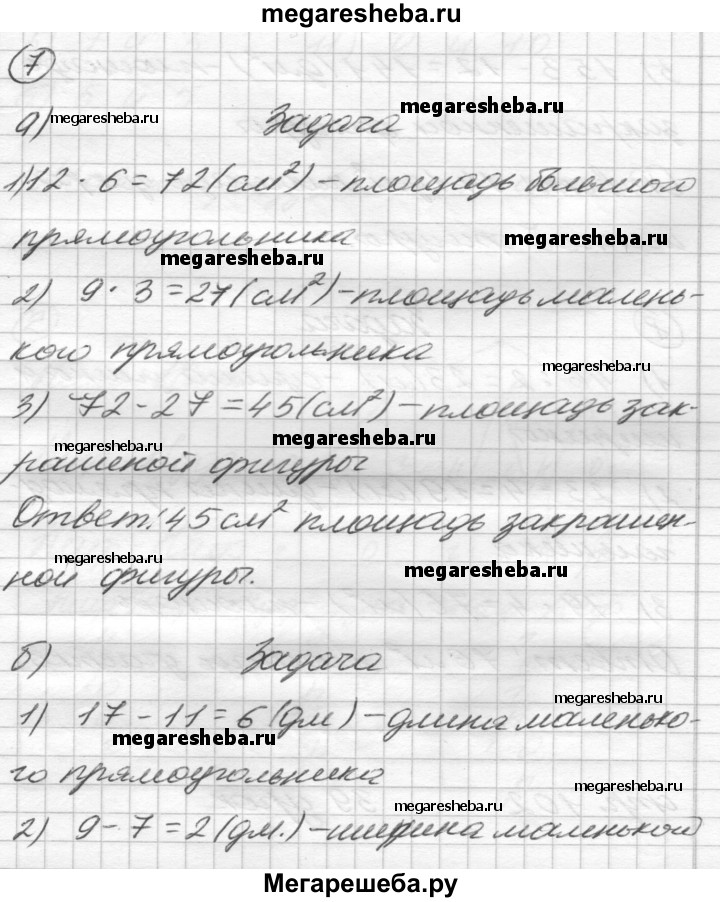 megaresheba.ru
7
а) megaresheba.ru Задача megaresheba.ru
1) 12 · 6 = 72 (см²) – площадь большого
прямоугольника megaresheba.ru
megaresheba.ru
2) 9 · 3 = 27 (см²) – площадь малень-
кого прямоугольника megaresheba.ru
3) 72 - 27 = 45 (см²) – площадь зак-
megaresheba.ru megaresheba.ru
рашеной фигуры
Ответ: 45 см² площадь закрашен-
megaresheba.ru
ной фигуры. megaresheba.ru
б) Задача
megaresheba.ru
1) 17 - 11 = 6 (дм) – длина маленько-
megaresheba.ru
го прямоугольника megaresheba.ru
megaresheba.ru
2) 9 - 7 = 2 (дм.) – ширина маленькой
Мегарешеба.ру